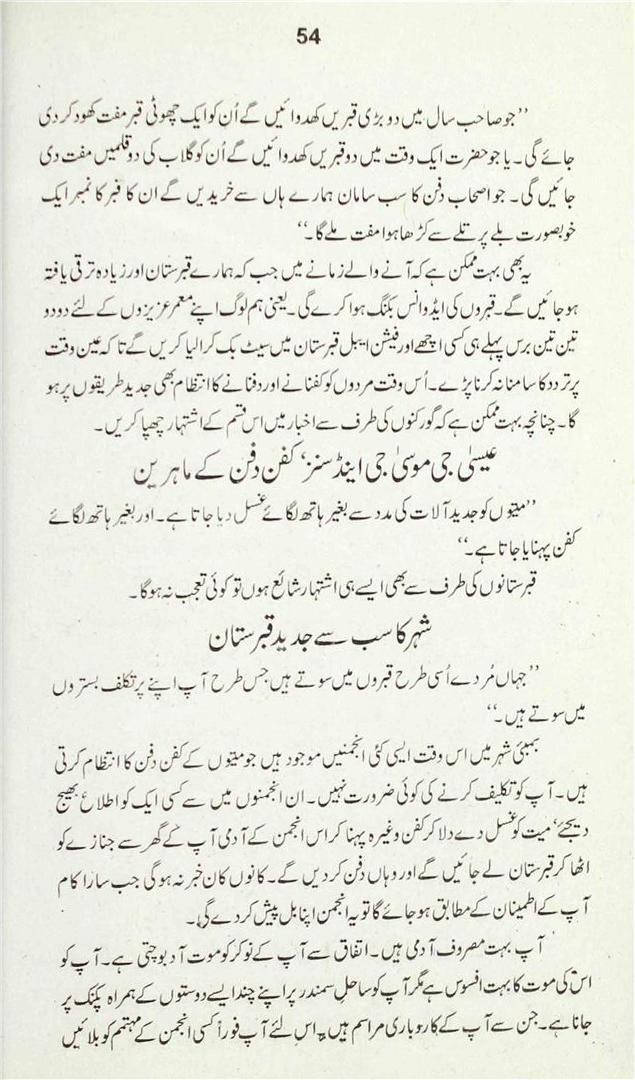 54
’’جو صاحب سال میں دو بڑی قبریں کھدوائیں گے اُن کو ایک چھوٹی قبر مفت کھود کر دی
جائے گی۔ یا جو حضرت ایک وقت میں دو قبریں کھدوائیں گے اُن کو گلاب کی دو قلمیں مفت دی
جائیں گی۔ جو اصحاب دفن کا سب سامان ہمارے ہاں سے خریدیں گے ان کا قبر کا نمبر ایک
خوبصورت بلے پر تلے سے کڑھا ہوا مفت ملے گا۔‘‘
یہ بھی بہت ممکن ہے کہ آنے والے زمانے میں جب کہ ہمارے قبرستان اور زیادہ ترقی یافتہ
ہو جائیں گے۔ قبروں کی ایڈوانس بکنگ ہوا کرے گی۔ یعنی ہم لوگ اپنے معمر عزیزوں کے لئے دو دو
تین تین برس پہلے ہی کسی اچھے اور فیشن ایبل قبرستان میں سیٹ بک کرا لیا کریں گے تا کہ عین وقت
پر تردد کا سامنا نہ کرنا پڑے۔ اُس وقت مردوں کو کفنانے اور دفنانے کا انتظام بھی جدید طریقوں پر ہو
گا۔ چنانچہ بہت ممکن ہے کہ گورکنوں کی طرف سے اخبار میں اس قسم کے اشتہار چھپا کریں۔
عیسیٰ جی موسیٰ جی اینڈ سنز‘ کفن دفن کے ماہرین
’’میتوں کو جدید آلات کی مدد سے بغیر ہاتھ لگائے غسل دیا جاتا ہے۔ اور بغیر ہاتھ لگائے
کفن پہنایا جاتا ہے۔‘‘
قبرستانوں کی طرف سے بھی ایسے ہی اشتہار شائع ہوں تو کوئی تعجب نہ ہوگا۔
شہر کا سب سے جدید قبرستان
’’جہاں مُردے اُسی طرح قبروں میں سوتے ہیں جس طرح آپ اپنے پر تکلف بستروں
میں سوتے ہیں۔‘‘
بمبئی شہر میں اس وقت ایسی کئی انجمنیں موجود ہیں جو میتوں کے کفن دفن کا انتظام کرتی
ہیں۔ آپ کو تکلیف کرنے کی کوئی ضرورت نہیں۔ ان انجمنوں میں سے کسی ایک کو اطلاع بھیج
دیجئے‘ میت کو غسل دے دلا کر کفن وغیرہ پہنا کر اس انجمن کے آدمی آپ کے گھر سے جنازے کو
اٹھا کر قبرستان لے جائیں گے اور وہاں دفن کر دیں گے۔ کانوں کان خبر نہ ہوگی جب سارا کام
آپ کے اطمینان کے مطابق ہو جائے گا تو یہ انجمن اپنا بل پیش کر دے گی۔
آپ بہت مصروف آدمی ہیں۔ اتفاق سے آپ کے نوکر کو موت آ دبوچتی ہے۔ آپ کو
اس کی موت کا بہت افسوس ہے مگر آپ کو ساحل سمندر پر اپنے چند ایسے دوستوں کے ہمراہ پکنک پر
جانا ہے۔ جن سے آپ کے کاروباری مراسم ہیں۔ اس لئے آپ فوراً کسی انجمن کے مہتمم کو بلائیں